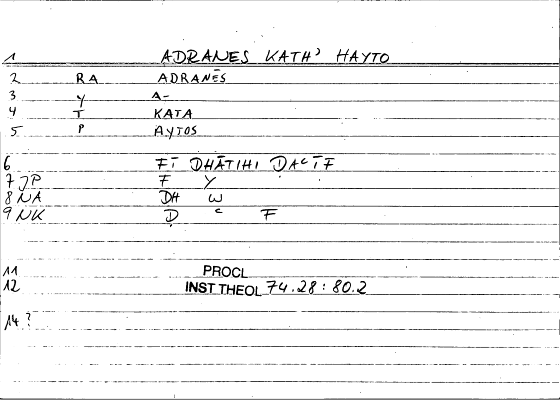 1 ADRANES KATH' HAYTO
2 RA ADRANĒS
3 Y A-
4 T KATA
5 P AYTOS
6 FĪ DHĀTIHI ḌAʿĪF
7 JP F Y
8 NA DH W
9 NK Ḍ ʿ F
11 PROCL
12 INST THEOL 74.28: 80.2
14 ?